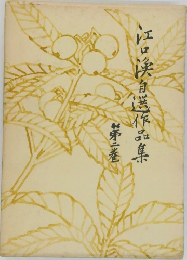 江口渙自選作品集
第三巻